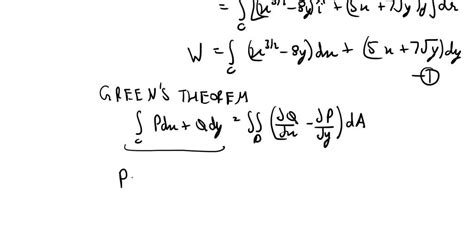 = ∫_C [(x^{3/2} - 8y) î + (5x + 7√y) ĵ] dr
W = ∫_C (x^{3/2} - 8y) dx + (5x + 7√y) dy
—①
GREEN'S THEOREM
∫_C Pdx + Qdy = ∬_D (∂Q/∂x - ∂P/∂y) dA
P